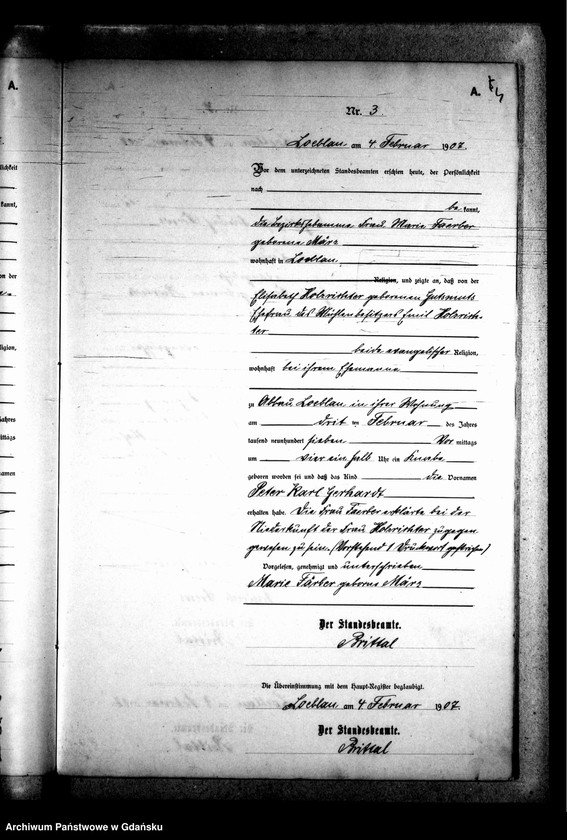 A.
Nr. 3.
Loeblau am 4. Februar 1907.
Vor dem unterzeichneten Standesbeamten erschien heute, der Persönlichkeit
nach
be kannt,
die Bezirkshebamme Frau Marie Faerber
geborene März
wohnhaft in Loeblau
Religion, und zeigte an, daß von der
Elisabeth Holzrichter geborenen
Ehefrau des Mühlenbesitzers Emil Holzrich-
ter
beide evangelischer Religion,
wohnhaft bei ihrem Ehemanne
zu Abbau Loeblau in ihrer Wohnung
am drit ten Februar des Jahres
tausend neunhundert sieben Vor mittags
um vier ein halb Uhr ein Knabe
geboren worden sei und daß das Kind die Vornamen
Peter Karl Gerhardt
erhalten habe. Die Frau Faerber erklärte bei der
Niederkunft der Frau Holzrichter zugegen
gewesen zu sein. (Vorstehend 1 Druckwort gestrichen)
Vorgelesen, genehmigt und unterschrieben
Marie Färber geborne März
Der Standesbeamte.
Brittal
Die Übereinstimmung mit dem Haupt-Register beglaubigt.
Loeblau am 4. Februar 1907.
Der Standesbeamte.
Brittal
Archiwum Państwowe w Gdańsku